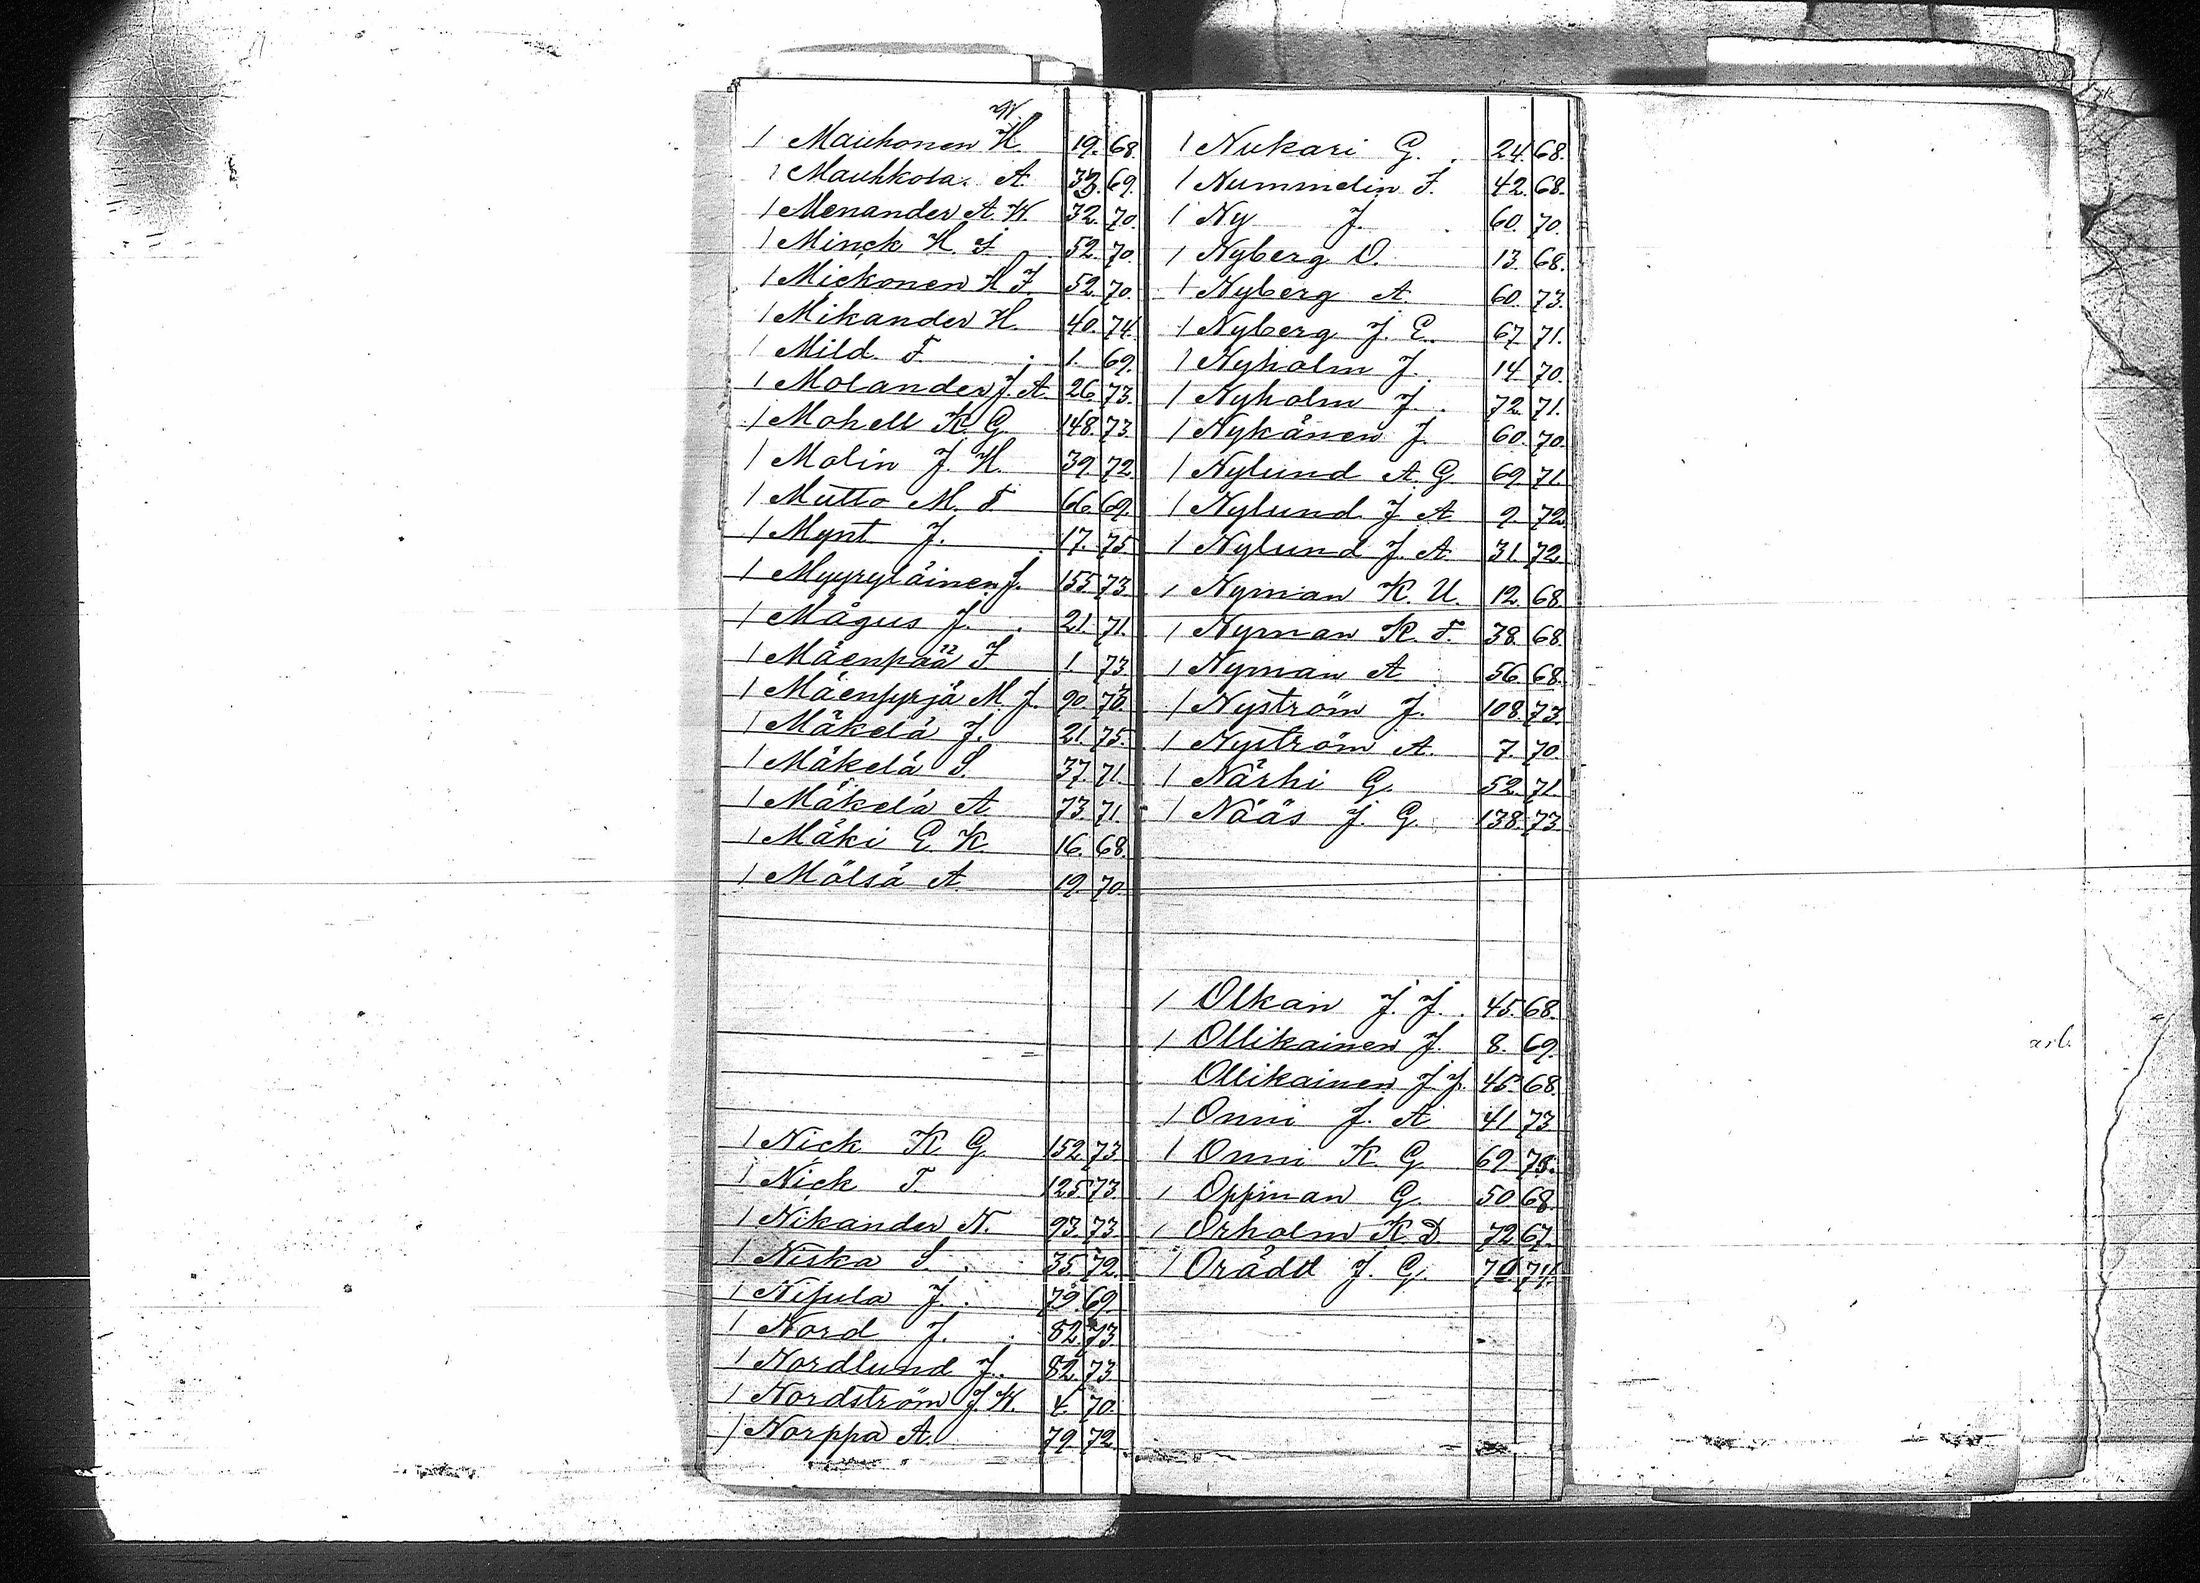 W
1 Mauhonen H. 19. 68.
1 Mauhkola. A. 33. 69.
1 Menander A. W. 32. 70.
1 Minck H. J. 52. 70.
1 Mickonen H J. 52. 70.
1 Mikander H. 40. 74.
1 Mild. F. 1. 69.
1 Molander J. A. 26. 73.
1 Mohell K. G. 148. 73.
1 Molin J. H. 39. 72.
1 Mutto M. F. 66. 69.
1 Mynt J. 17. 75.
1 Myyryläinen J. 155. 73.
1 Mågus J. 21. 71.
1 Mäenpää J 1. 73.
1 Mäenpyrjä M. J. 90. 73.
1 Mäkelä J. 21. 75.
1 Mäkelä S. 37. 71.
1 Mäkelä A 73. 71.
1 Mäki E. K. 16. 68.
1 Mölsä A 19. 70.
1 Nick K G 152. 73
1 Nick F. 125. 73.
1 Nikander N. 93. 73
1 Niska S. 35. 72.
1 Nisula J. 79. 69.
1 Nord J. 82. 73.
1 Nordlund J. 82. 73
1 Nordström J. W. 4. 70.
1 Norppa A. 79. 72.
1 Nukari G. 24. 68.
1 Nummelin J. 42. 68.
1 Ny J. 60. 70.
1 Nyberg O. 13. 68.
1 Nyberg A. 60. 73.
1 Nyberg J. E. 67. 71.
1 Nyholm J. 14 70.
1 Nyholm J. 72. 71.
1 Nykänen J. 60. 70.
1 Nylund A. G 69. 71.
1 Nylund J A 9. 72.
1 Nylund J. A. 31. 72.
1 Nyman K. U. 12. 68.
1 Nyman K. F. 38. 68.
1 Nyman A 56. 68.
1 Nyström J. 108. 73.
1 Nyström A. 7. 70.
1 Närhi G. 52. 71.
1 Nääs J. G. 138. 73.
1 Olkan J. J. 45. 68.
1 Ollikainen J. 8. 69.
Ollikainen J J. 45. 68.
1 Onni J. A 41 73
1 Onni K. G. 69
1 Oppman G. 50. 68.
1 Orholm K. D. 72. 67.
1 Orädd J. G. 71.
arb.